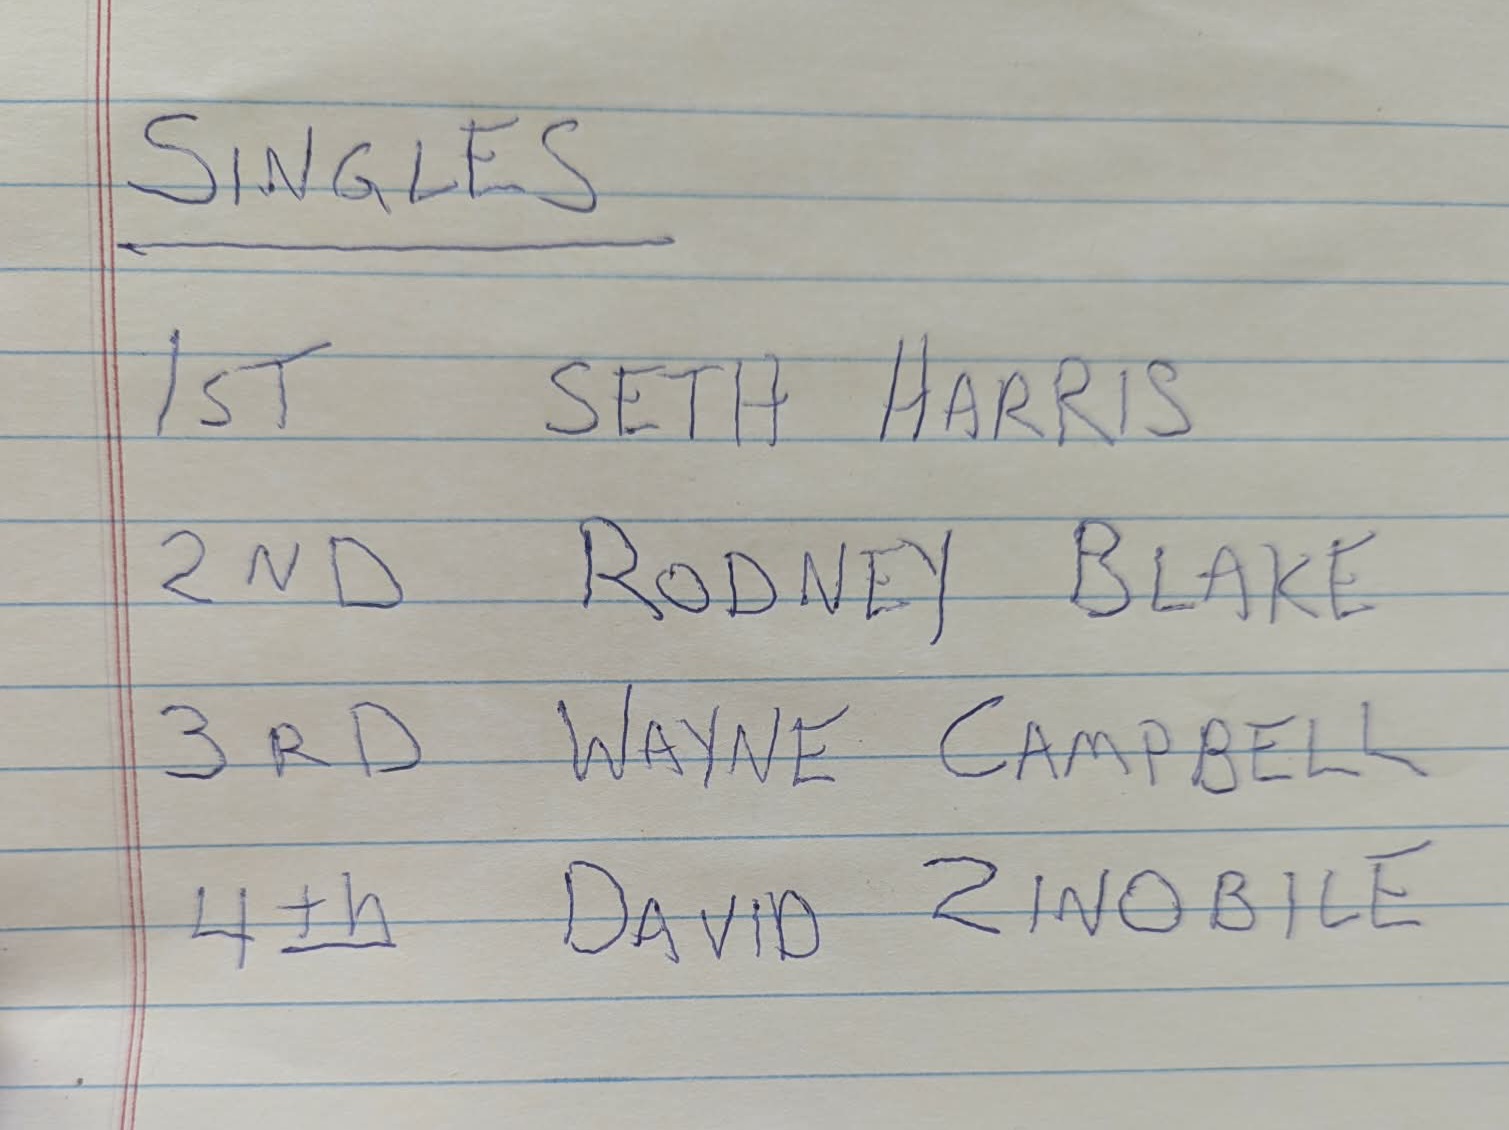 SINGLES
1ST SETH HARRIS
2ND RODNEY BLAKE
3RD WAYNE CAMPBELL
4th DAVID ZINOBILE